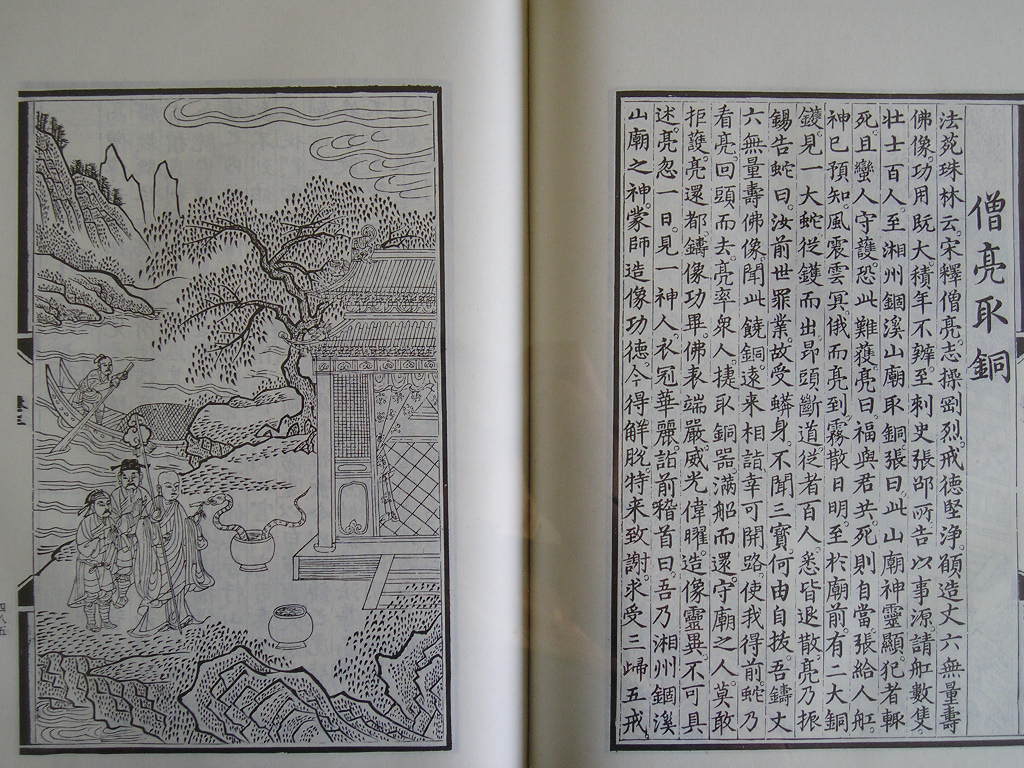 僧亮取銅
法苑珠林云。宋釋僧亮。志操剛烈。戒德堅淨。願造丈六無量壽
佛像。功用既大。積年不辦。至刺史張邵所告以事源。請舡數隻。
壯士百人。至湘州錮溪山廟取銅。張曰。此山廟神靈顯。犯者輒
死。且蠻人守護。恐此難獲。亮曰。福與君共。死則自當。張給人舡。
神已預知。風震雲冥。俄而亮到。霧散日明。至於廟前。有二大銅
鑊。見一大蛇從鑊而出。昂頭斷道。從者百人。悉皆退散。亮乃振
錫告蛇曰。汝前世罪業。故受蟒身。不聞三寶。何由自拔。吾鑄丈
六無量壽佛像。聞此饒銅。遠來相詣。幸可開路。使我得前。蛇乃
看亮。回頭而去。亮率眾人捿取銅器。滿船而還。守廟之人。莫敢
拒護。亮還都鑄像功畢。佛表端嚴。威光偉曜。造像靈異。不可具
述。亮忽一日。見一神人。衣冠華麗。詣前稽首曰。吾乃湘州錮溪
山廟之神。蒙師造像功德。今得解脫。特來致謝。求受三歸五戒。
四八五